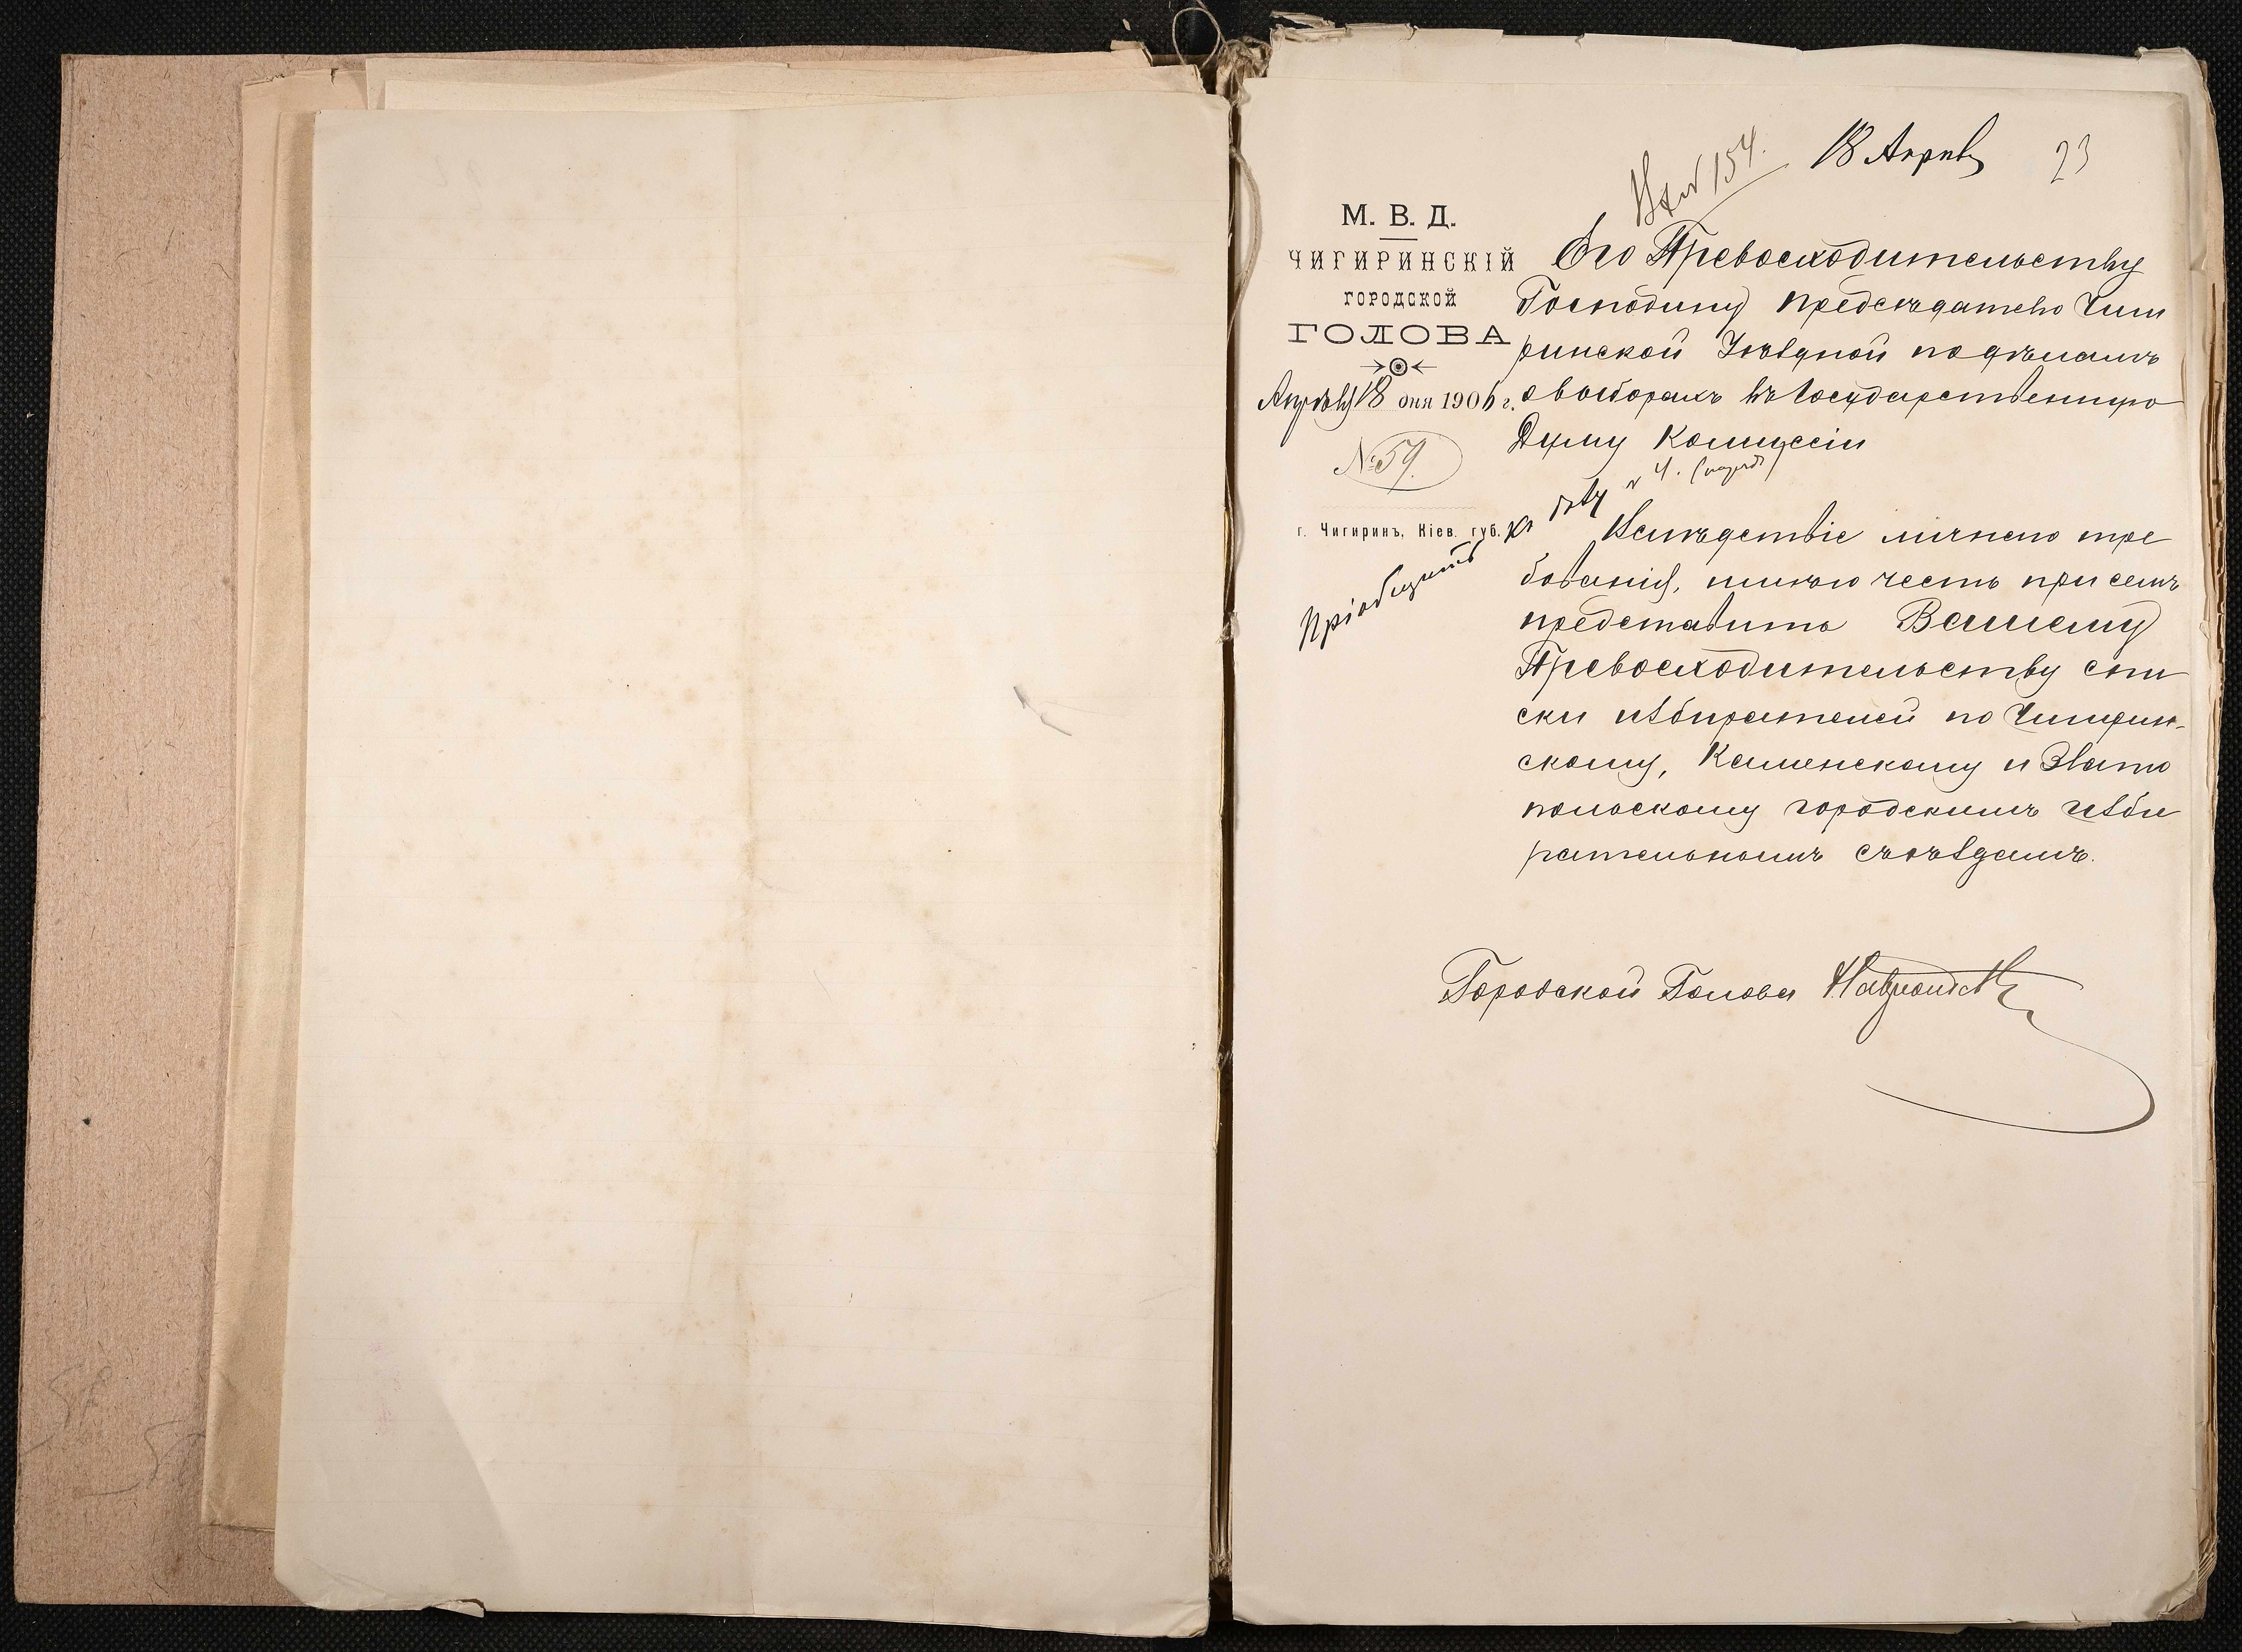 18 Апрѣля
23
Вх. № 154.
М. В. Д.
ЧИГИРИНСКІЙ
ГОРОДСКОЙ
ГОЛОВА
Апрѣля 18 дня 1906 г.
№ 59.
г. Чигиринъ, Кіев. губ.
Его Превосходительству
Господину предсѣдателю Чиги
ринской Уѣздной по дѣламъ
о выборахъ въ Государственную
Думу Комиссіи
Пріобщить къ дѣлу
№ 4.
Вслѣдствіе личнаго тре
бованія, имѣю честь при семъ
представить Вашему
Превосходительству спи
ски избирателей по Чигирин-
скому, Каменскому и Злато
польскому городскимъ изби
рательнымъ съѣздамъ.
Городской Голова